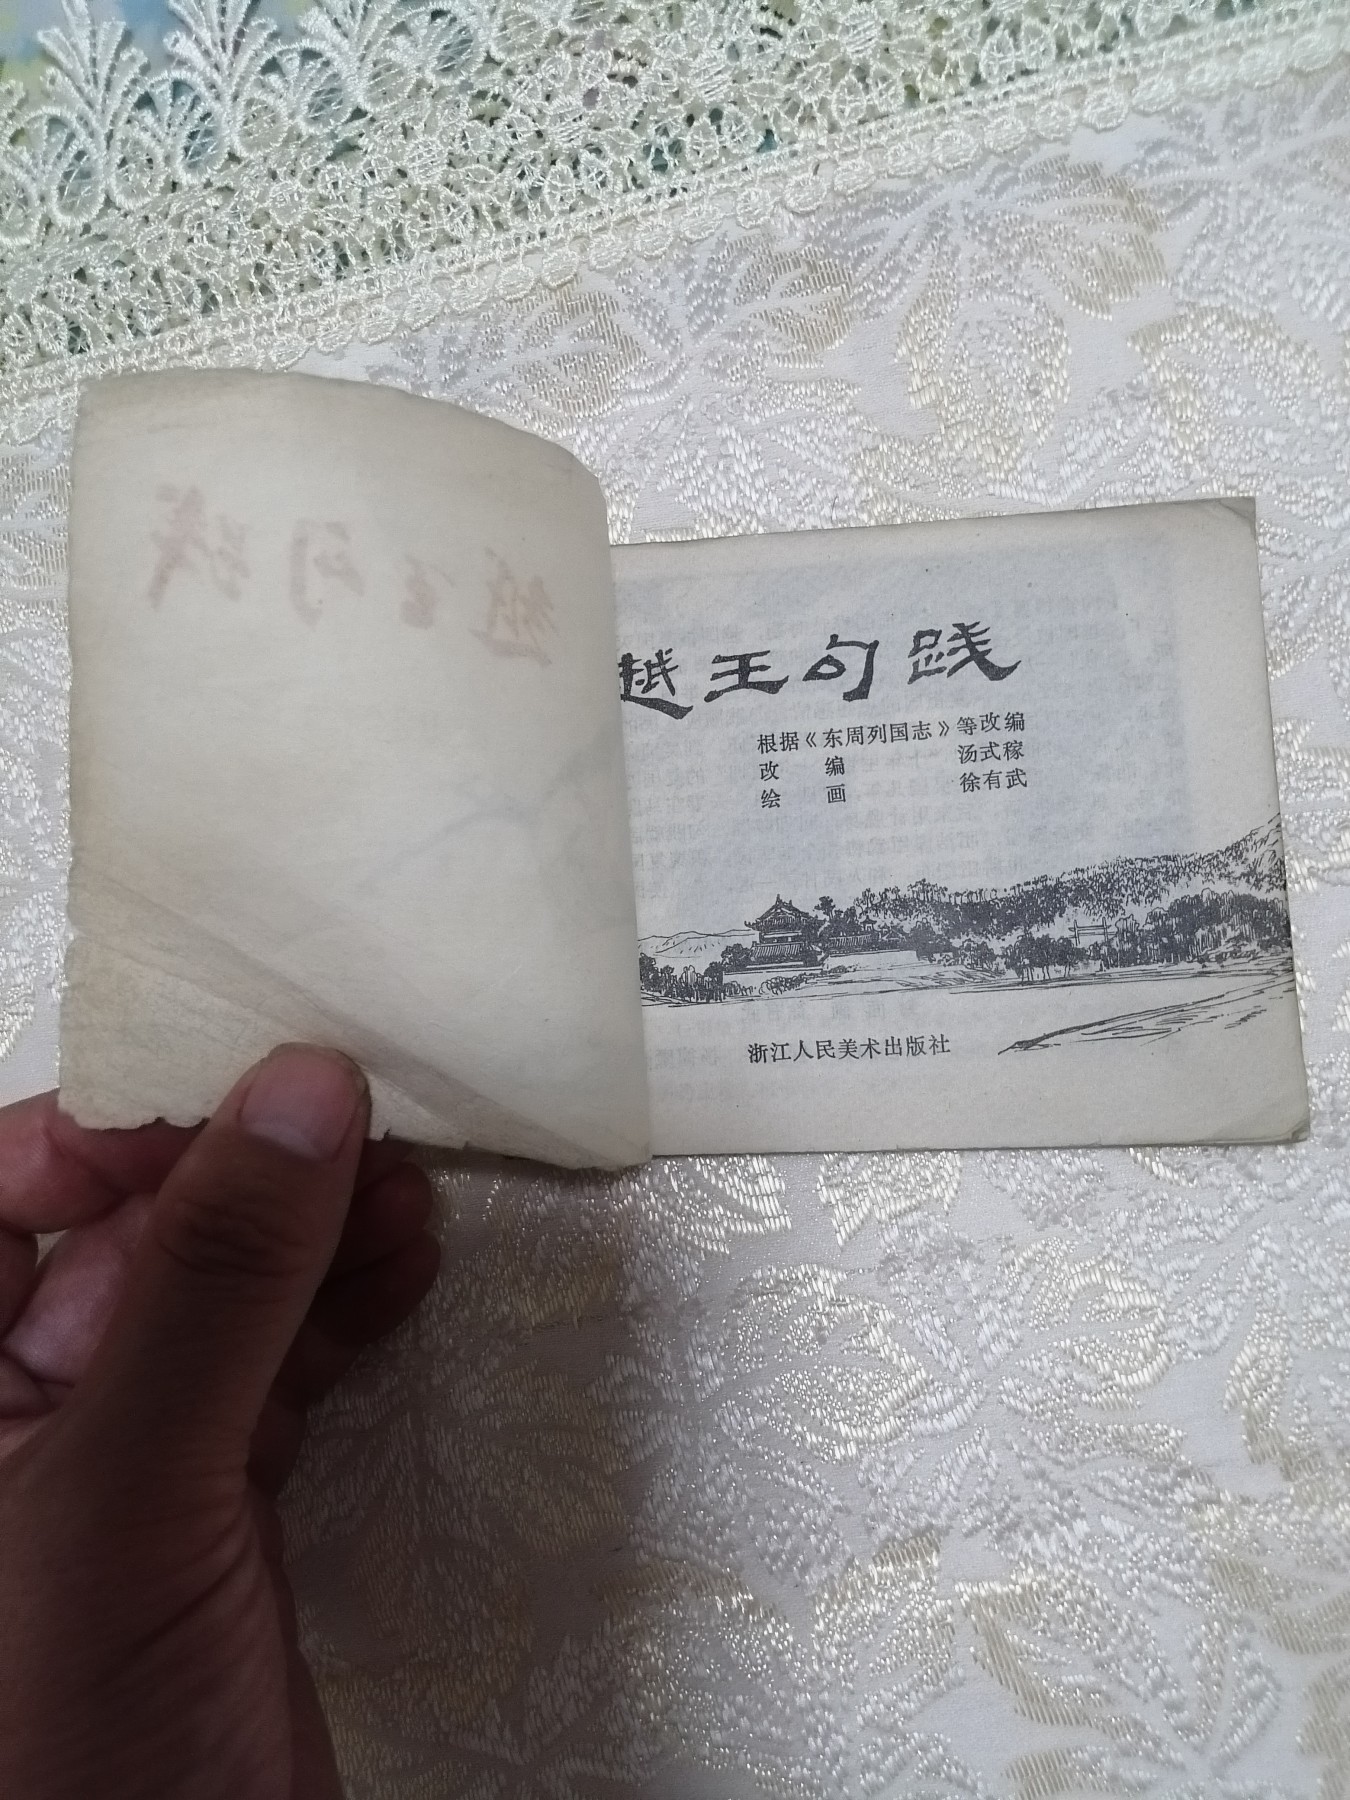 越王句践
根据《东周列国志》等改编
改 编 汤式稼
绘 画 徐有武
浙江人民美术出版社